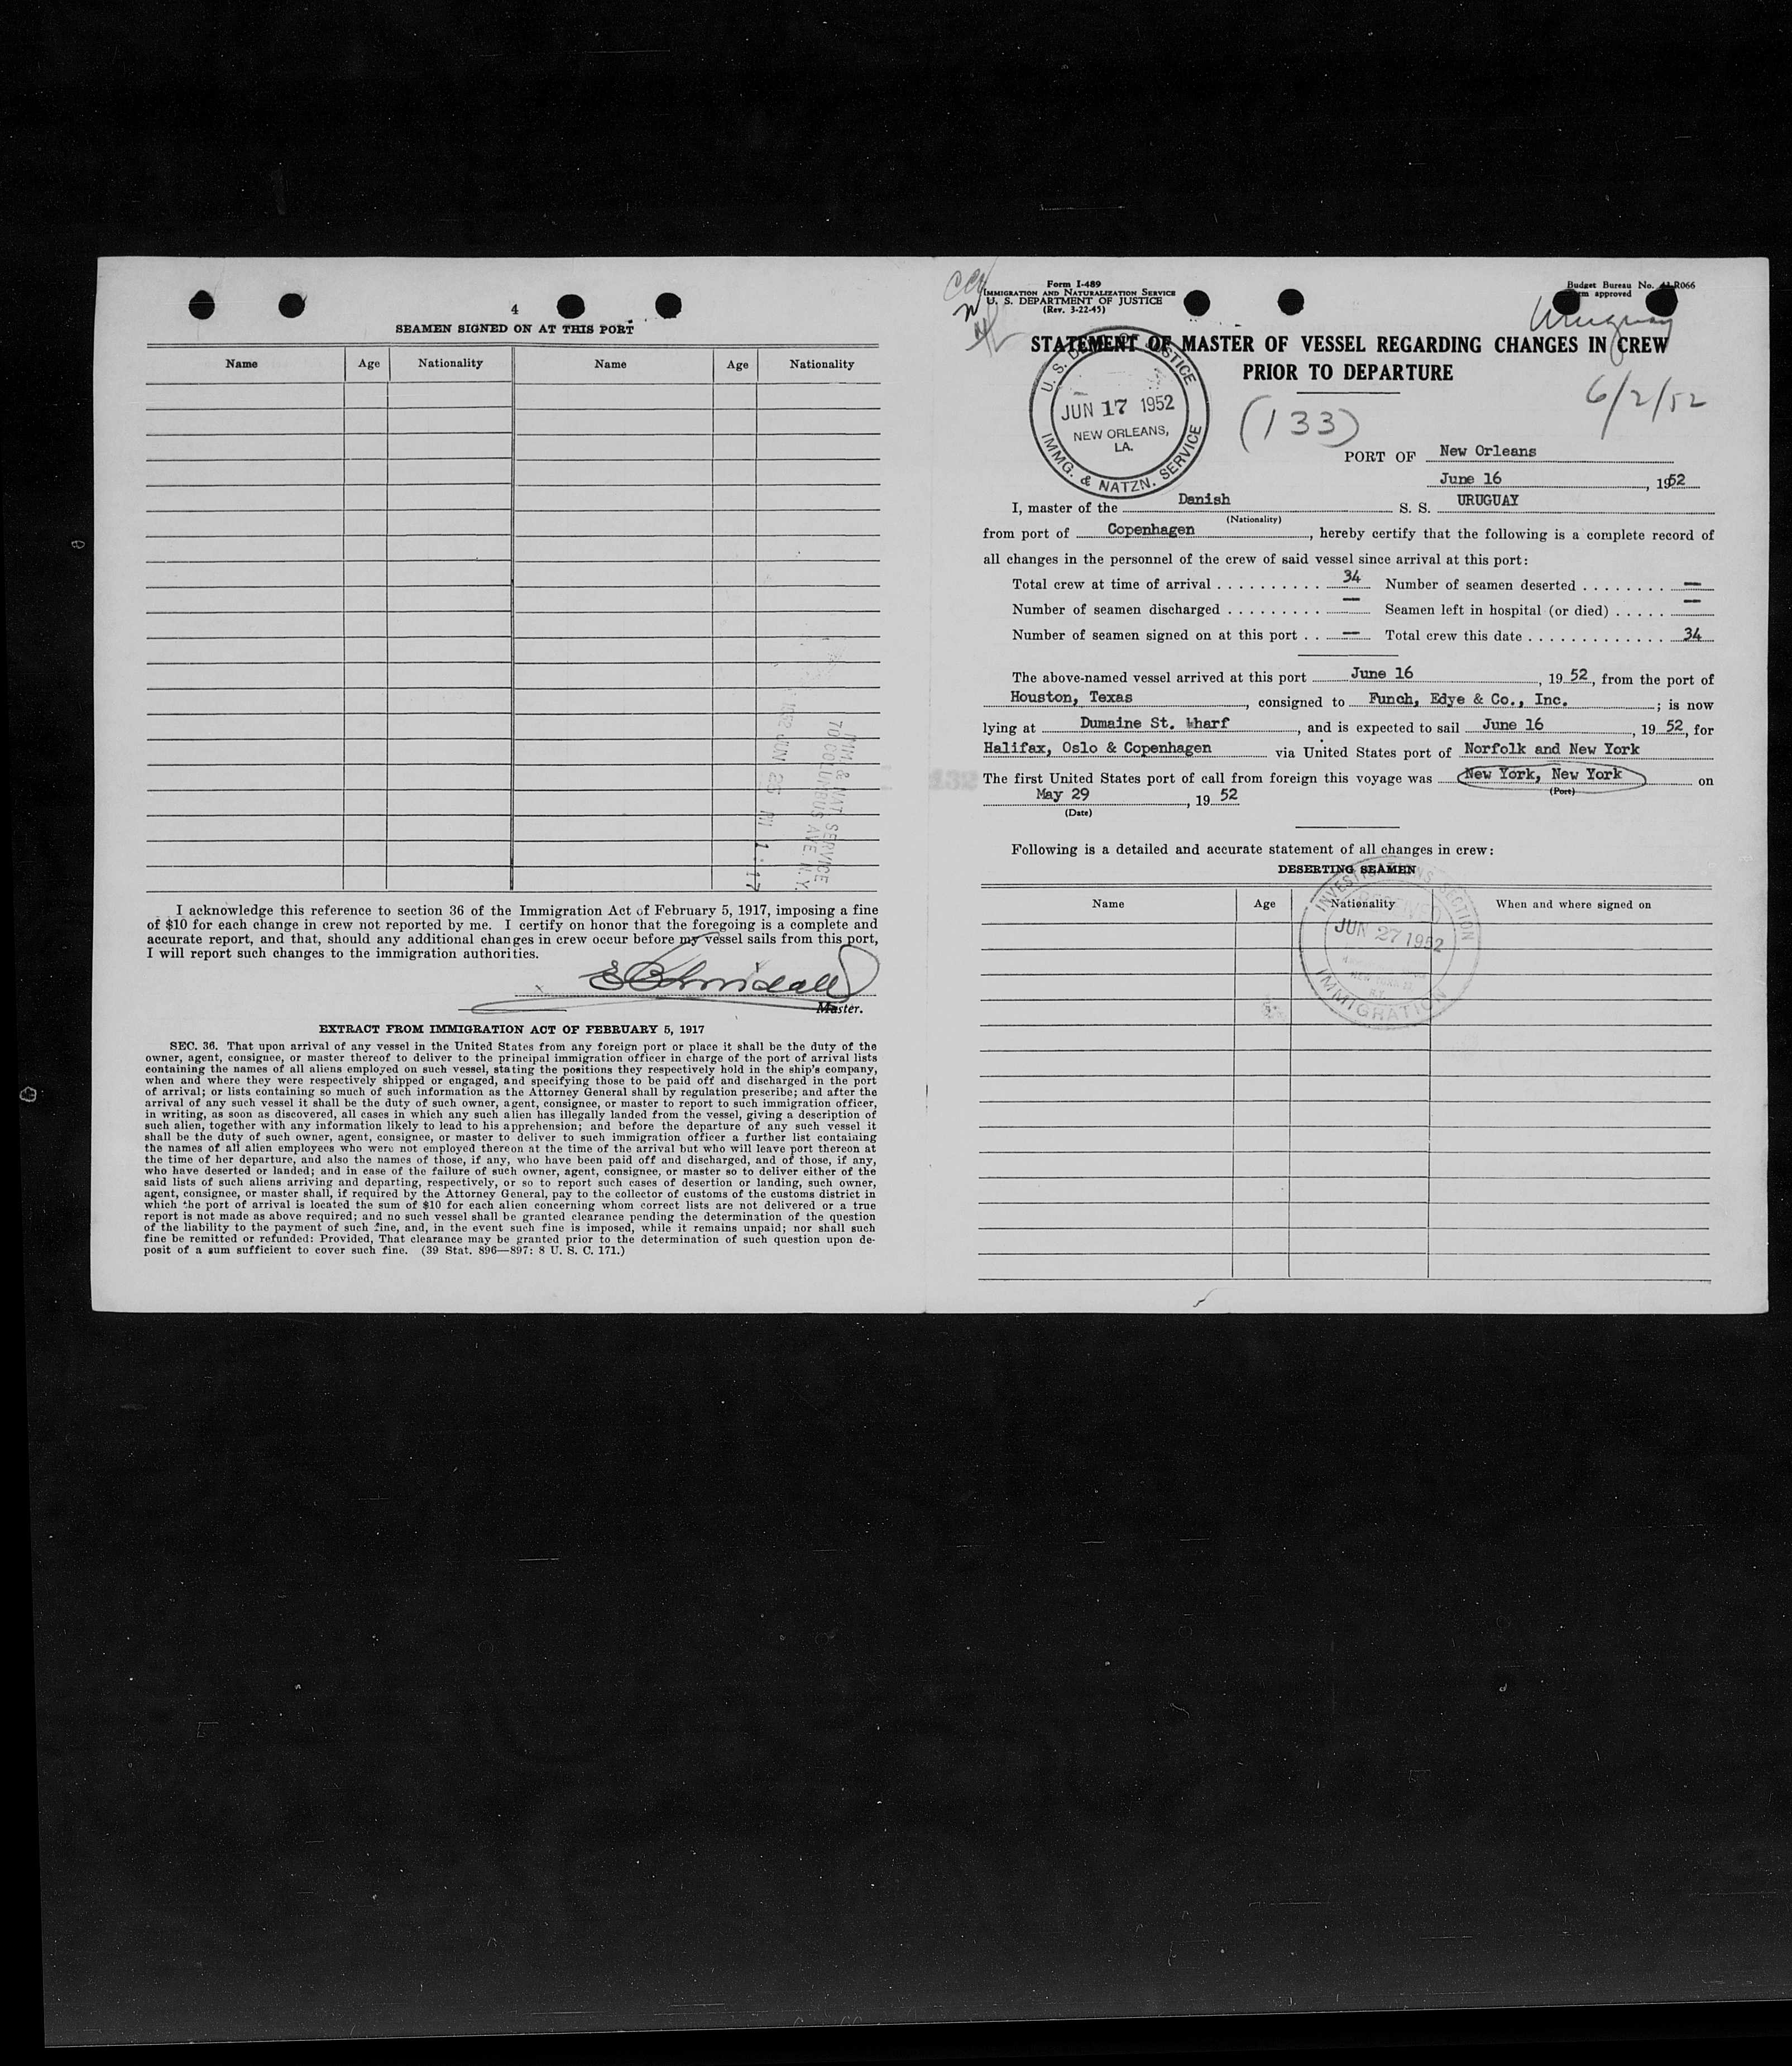 4
SEAMEN SIGNED ON AT THIS PORT
Name Age Nationality Name Age Nationality
1952 JUN 25 PM 1:17
IMM. & NAT. SERVICE
70 COLUMBUS AVE. N.Y.
I acknowledge this reference to section 36 of the Immigration Act of February 5, 1917, imposing a fine
of $10 for each change in crew not reported by me. I certify on honor that the foregoing is a complete and
accurate report, and that, should any additional changes in crew occur before my vessel sails from this port,
I will report such changes to the immigration authorities.
Master.
EXTRACT FROM IMMIGRATION ACT OF FEBRUARY 5, 1917
SEC. 36. That upon arrival of any vessel in the United States from any foreign port or place it shall be the duty of the
owner, agent, consignee, or master thereof to deliver to the principal immigration officer in charge of the port of arrival lists
containing the names of all aliens employed on such vessel, stating the positions they respectively hold in the ship's company,
when and where they were respectively shipped or engaged, and specifying those to be paid off and discharged in the port
of arrival; or lists containing so much of such information as the Attorney General shall by regulation prescribe; and after the
arrival of any such vessel it shall be the duty of such owner, agent, consignee, or master to report to such immigration officer,
in writing, as soon as discovered, all cases in which any such alien has illegally landed from the vessel, giving a description of
such alien, together with any information likely to lead to his apprehension; and before the departure of any such vessel it
shall be the duty of such owner, agent, consignee, or master to deliver to such immigration officer a further list containing
the names of all alien employees who were not employed thereon at the time of the arrival but who will leave port thereon at
the time of her departure, and also the names of those, if any, who have been paid off and discharged, and of those, if any,
who have deserted or landed; and in case of the failure of such owner, agent, consignee, or master so to deliver either of the
said lists of such aliens arriving and departing, respectively, or so to report such cases of desertion or landing, such owner,
agent, consignee, or master shall, if required by the Attorney General, pay to the collector of customs of the customs district in
which the port of arrival is located the sum of $10 for each alien concerning whom correct lists are not delivered or a true
report is not made as above required; and no such vessel shall be granted clearance pending the determination of the question
of the liability to the payment of such fine, and, in the event such fine is imposed, while it remains unpaid; nor shall such
fine be remitted or refunded: Provided, That clearance may be granted prior to the determination of such question upon de-
posit of a sum sufficient to cover such fine. (39 Stat. 896—897: 8 U. S. C. 171.)
Form I-489
IMMIGRATION AND NATURALIZATION SERVICE
U. S. DEPARTMENT OF JUSTICE
(Rev. 3-22-45)
Budget Bureau No. R066
approved
Uruguay
STATEMENT OF MASTER OF VESSEL REGARDING CHANGES IN CREW
PRIOR TO DEPARTURE
6/2/52
(133)
U. S. DEPT. OF JUSTICE
JUN 17 1952
NEW ORLEANS,
LA.
IMMG. & NATZN. SERVICE
PORT OF New Orleans
June 16, 1952
I, master of the Danish S. S. URUGUAY
(Nationality)
from port of Copenhagen, hereby certify that the following is a complete record of
all changes in the personnel of the crew of said vessel since arrival at this port:
Total crew at time of arrival . . . . . . . . . . 34 Number of seamen deserted . . . . . . . . —
Number of seamen discharged . . . . . . . . . — Seamen left in hospital (or died) . . . . . —
Number of seamen signed on at this port . . — Total crew this date . . . . . . . . . . . . . 34
The above-named vessel arrived at this port June 16, 1952, from the port of
Houston, Texas, consigned to Funch, Edye & Co., Inc.; is now
lying at Dumaine St. Wharf, and is expected to sail June 16, 1952, for
Halifax, Oslo & Copenhagen via United States port of Norfolk and New York
The first United States port of call from foreign this voyage was New York, New York on
(Port)
May 29, 1952
(Date)
132
Following is a detailed and accurate statement of all changes in crew:
DESERTING SEAMEN
Name Age Nationality When and where signed on
INVESTIGATIONS SECTION
RECEIVED
JUN 27 1952
IMMIGRATION